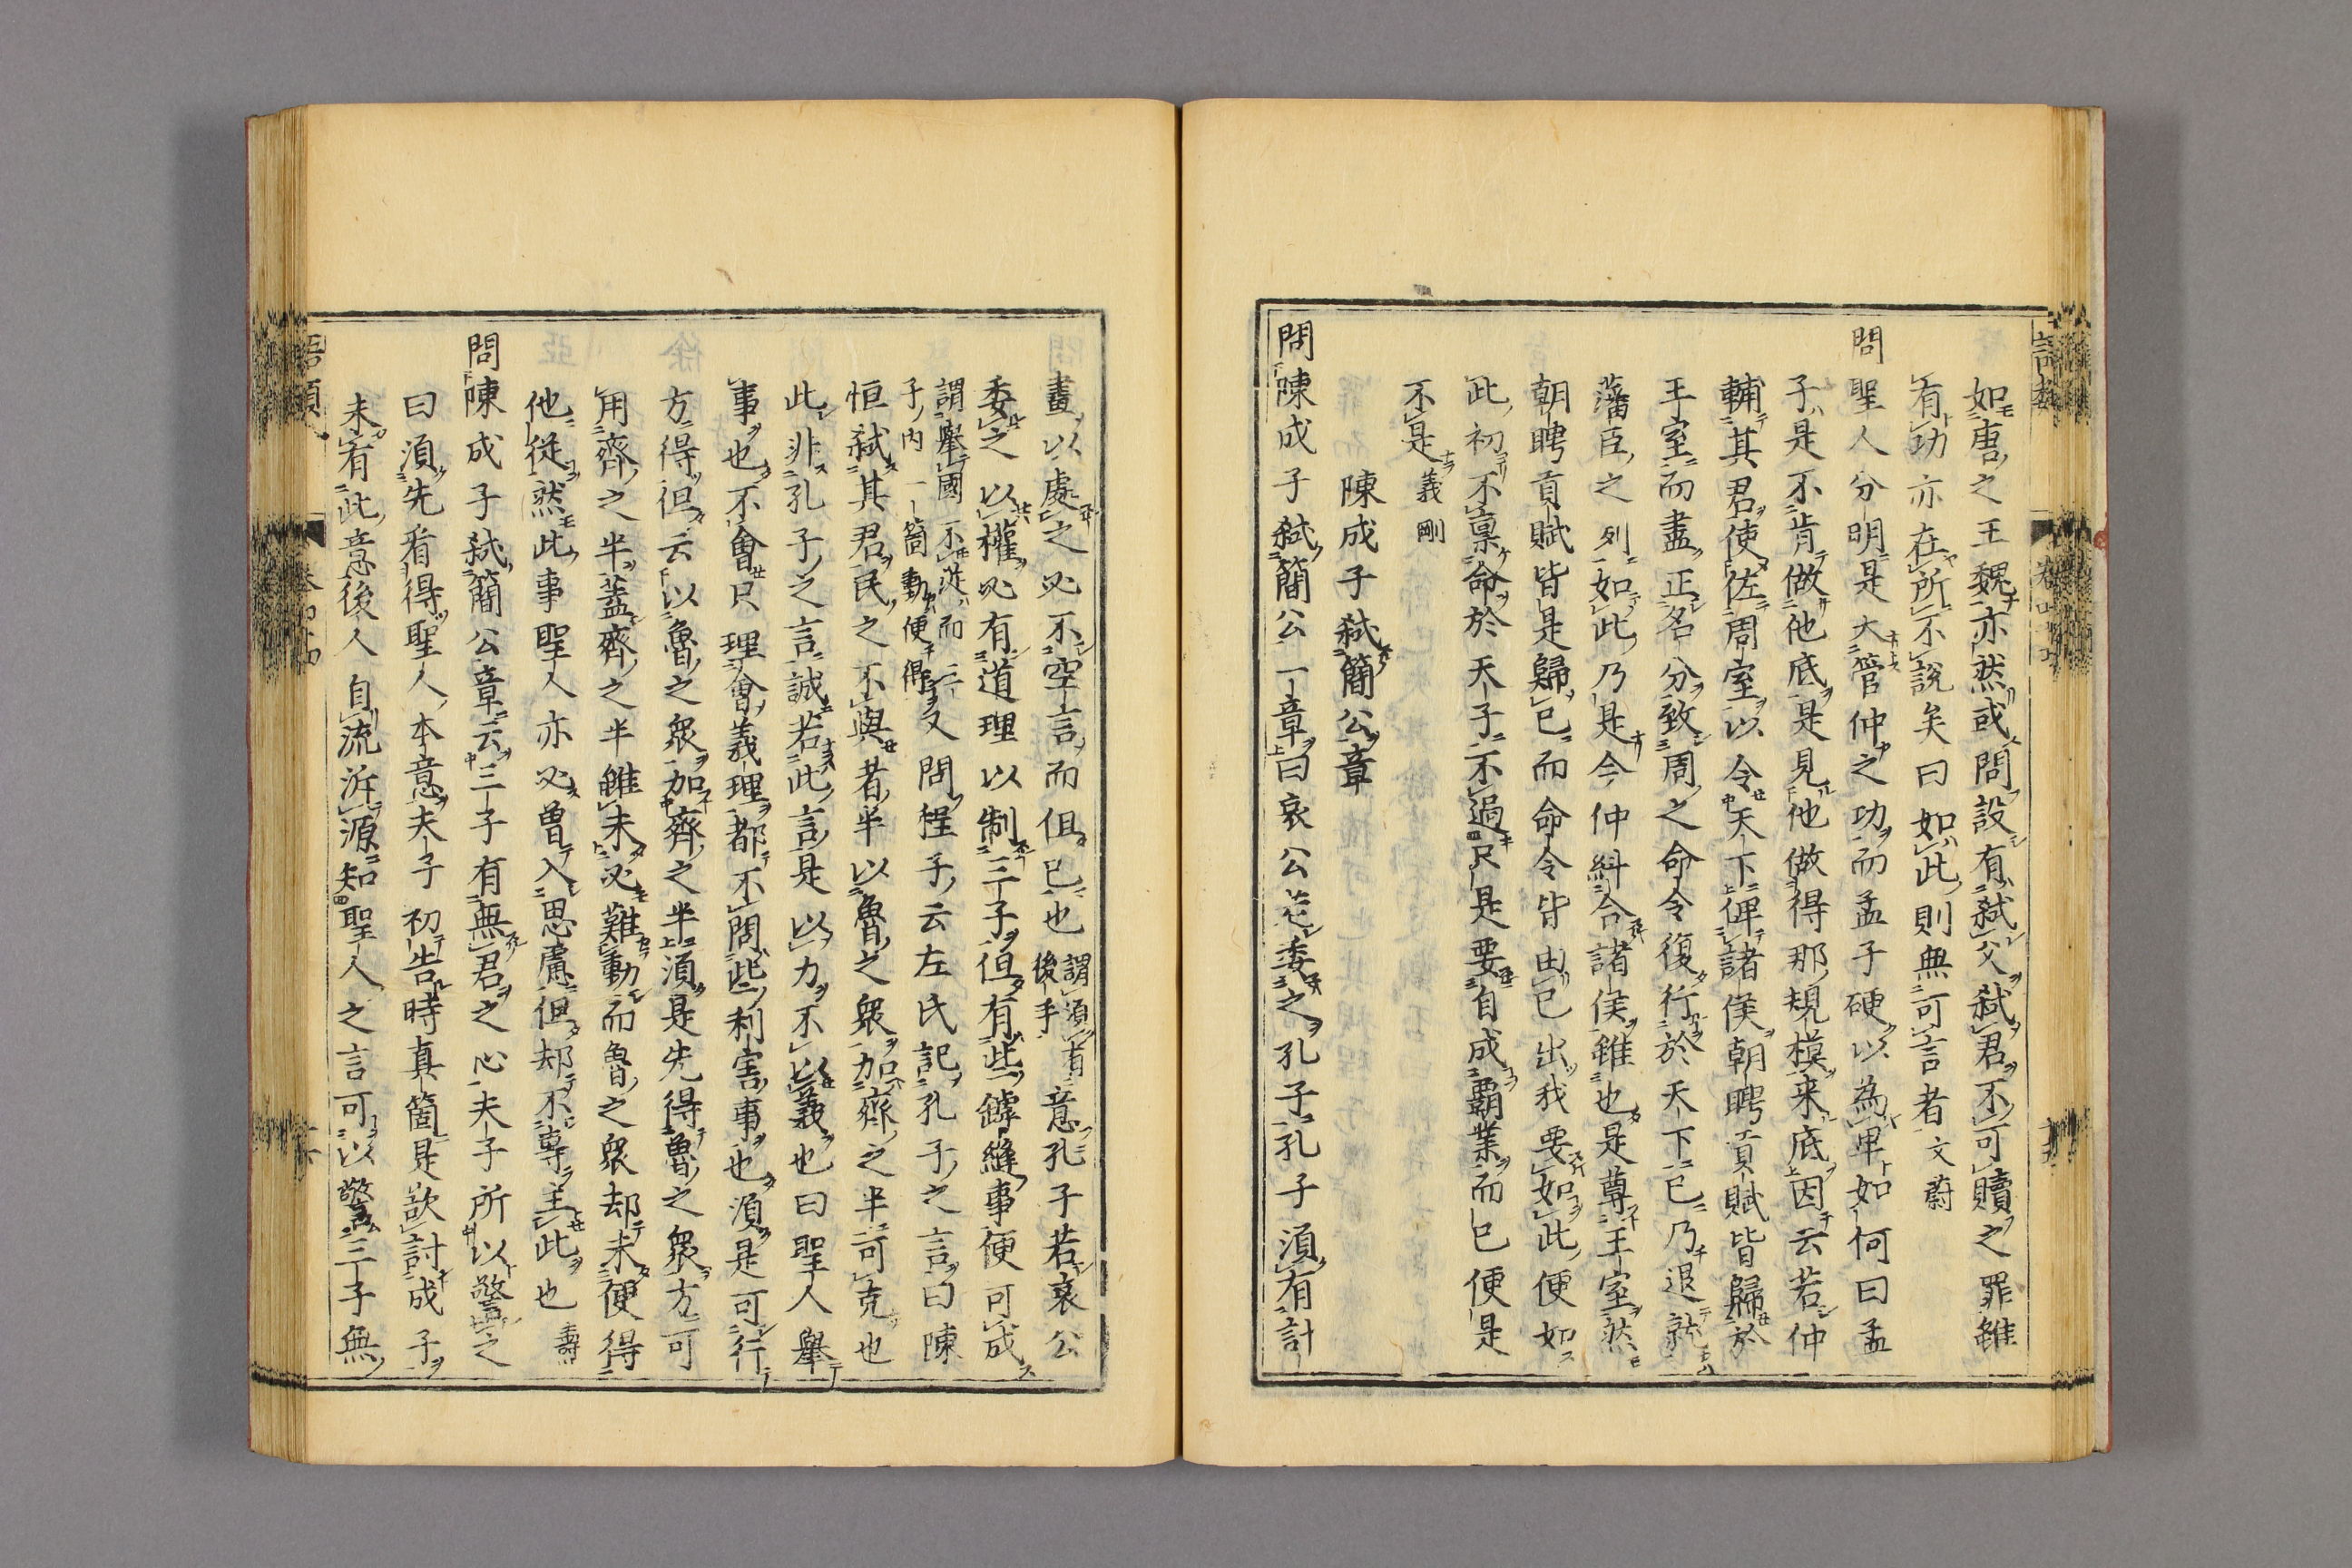 如唐之王魏亦然或問設有弑父弑君不可贖之罪雖
有功亦在所不說矣曰如此則無可言者文蔚
問聖人分明是大管仲之功而孟子硬以為卑如何曰孟
子是不肯做他底是見他做得那規模来底因云若仲
輔其君使佐周室以令天下俾諸侯朝聘貢賦皆歸於
王室而盡正名分致周之命令復行於天下已乃退就
藩臣之列如此乃是今仲糾合諸侯雖也是尊王室然
朝聘貢賦皆是歸已而命令皆由已出我要如此便如
此初不稟命於天子不過只是要自成覇業而已便是
不是義剛
陳成子弑簡公章
問陳成子弑簡公一章曰哀公若委之孔子孔子須有計
畫以處之必不空言而但已也謂須有後手意孔子若哀公
委之以權必有道理以制三子但有些罅縫事便可成
謂舉國不從而三子内一箇動便得又問程子云左氏記孔子之言曰陳
恒弑其君民之不與者半以魯之衆加齊之半可克也
此非孔子之言誠若此言是以力不以義也曰聖人舉
事也不會只理會義理都不問些利害事也須是可行
方得但云以魯之衆加齊之半須是先得魯之衆方可
用齊之半蓋齊之半雖未必難動而魯之衆却未便得
他從然此事聖人亦必曽入思慮但却不專主此也壽
問陳成子弑簡公章云三子有無君之心夫子所以警之
曰須先看得聖人本意夫子初告時真箇是欲討成子
未有此意後人自流泝源知聖人之言可以警三子無